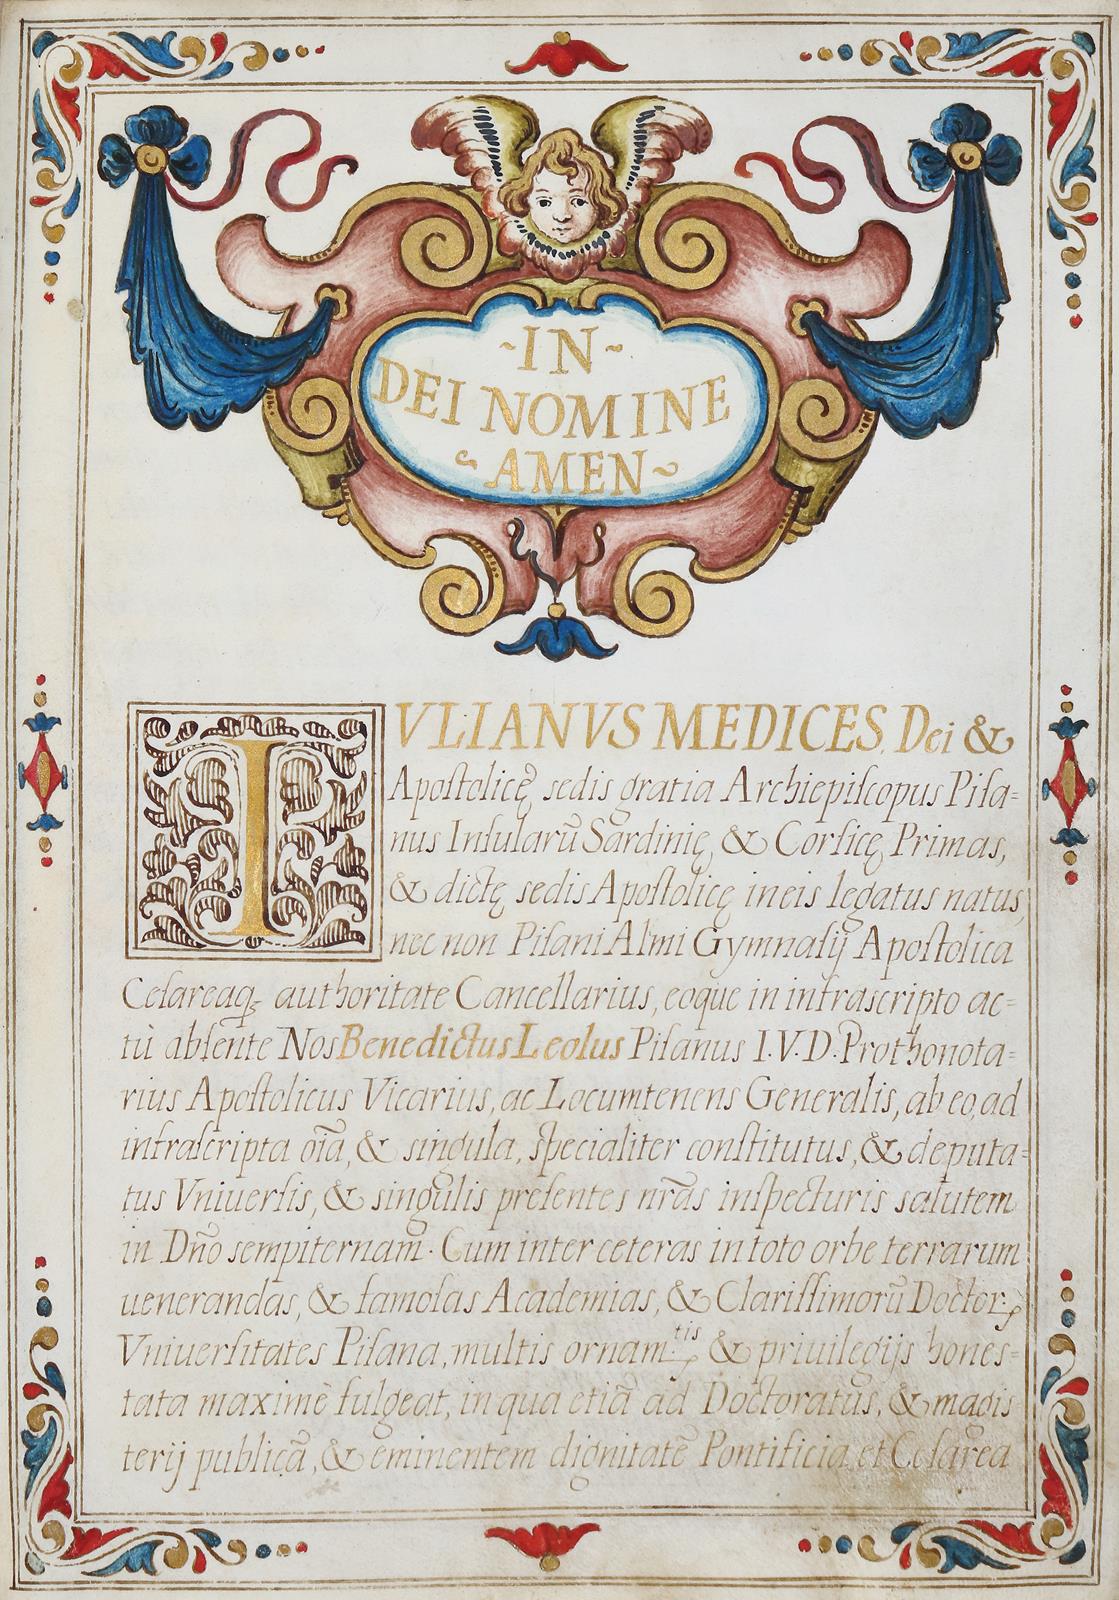 ~IN~
DEI NOMINE
~AMEN~
IVLIANVS MEDICES. Dei &
Apoſtolicę sedis gratia Archiepiſcopus Piſa=
nus Inſularū Sardinię, & Corſicę Primas,
& dictę sedis Apoſtolicę in eis legatus natus,
nec non Piſani Almi Gymnaſij Apoſtolica
Ceſareaq; authoritate Cancellarius, eoque in infrascripto ac=
tù abſente Nos Benedictus Leolus Piſanus I.V.D. Prothonota=
rius Apoſtolicus Vicarius, ac Locumtenens Generalis, ab eo, ad
infraſcripta oīa, & singula, ſpecialiter conſtitutus, & deputa=
tus Vniuerſis, & singulis preſentes nr̄as inſpecturis salutem
in Dn̄o sempiternam. Cum inter ceteras in toto orbe terrarum
uenerandas, & famoſas Academias, & Clariſſimorū Doctorꝝ
Vniuerſitates Piſana, multis ornam:tis & priuilegijs hones=
tata maximè fulgeat, in qua etiā ad Doctoratus, & magis
terij publicā, & eminentem dignitatē Pontificia et Ceſarea